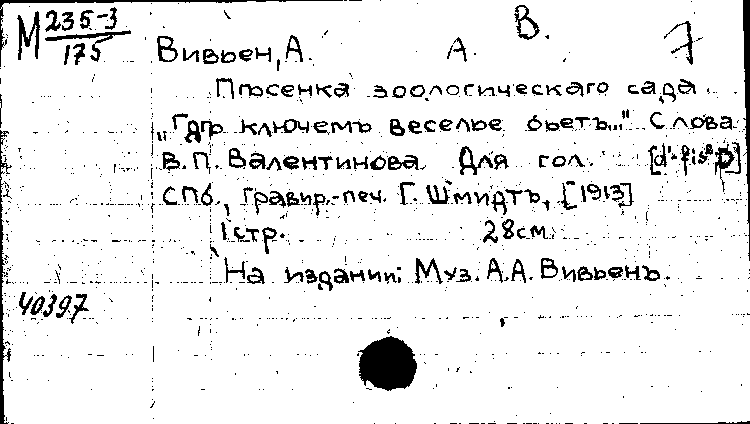 М 235-3/175
В.
7
Вивьен, А. А.
Пѣсенка зоологическаго сада.
„Гдѣ ключемъ веселье бьетъ..." Слова
В. П. Валентинова. Для гол. [d'-fis² D]
СПб., Гравир.-печ. Г. Шмидтъ, [1913]
1 стр. 28 см.
На издании: Муз. А. А. Вивьенъ.
40397